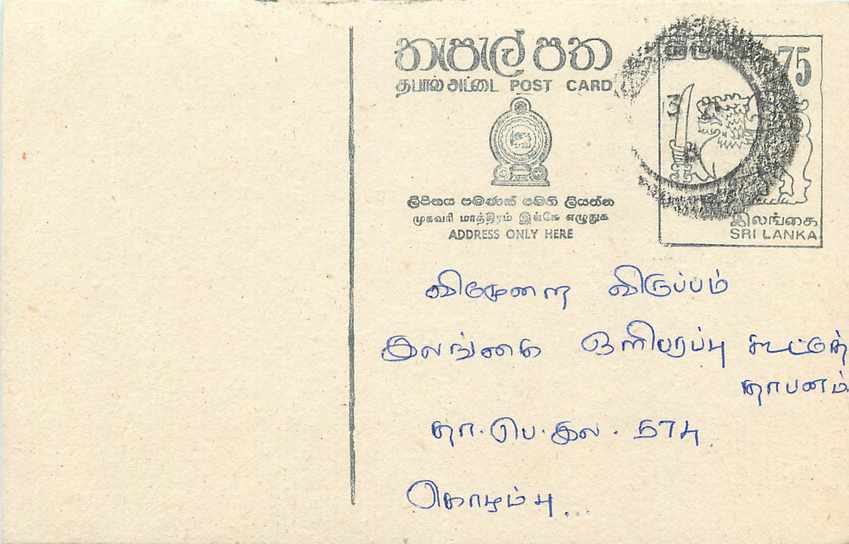 තැපැල් පත
தபால் அட்டை POST CARD
75
3
ලිපිනය පමණක් මෙහි ලියන්න
முகவரி மாத்திரம் இங்கே எழுதுக
ADDRESS ONLY HERE
இலங்கை
SRI LANKA
விருப்பம்
இலங்கை ஒளிபரப்பு கூட்டுத்
தாபனம்
தா.பெ.இல. 574
கொழும்பு...